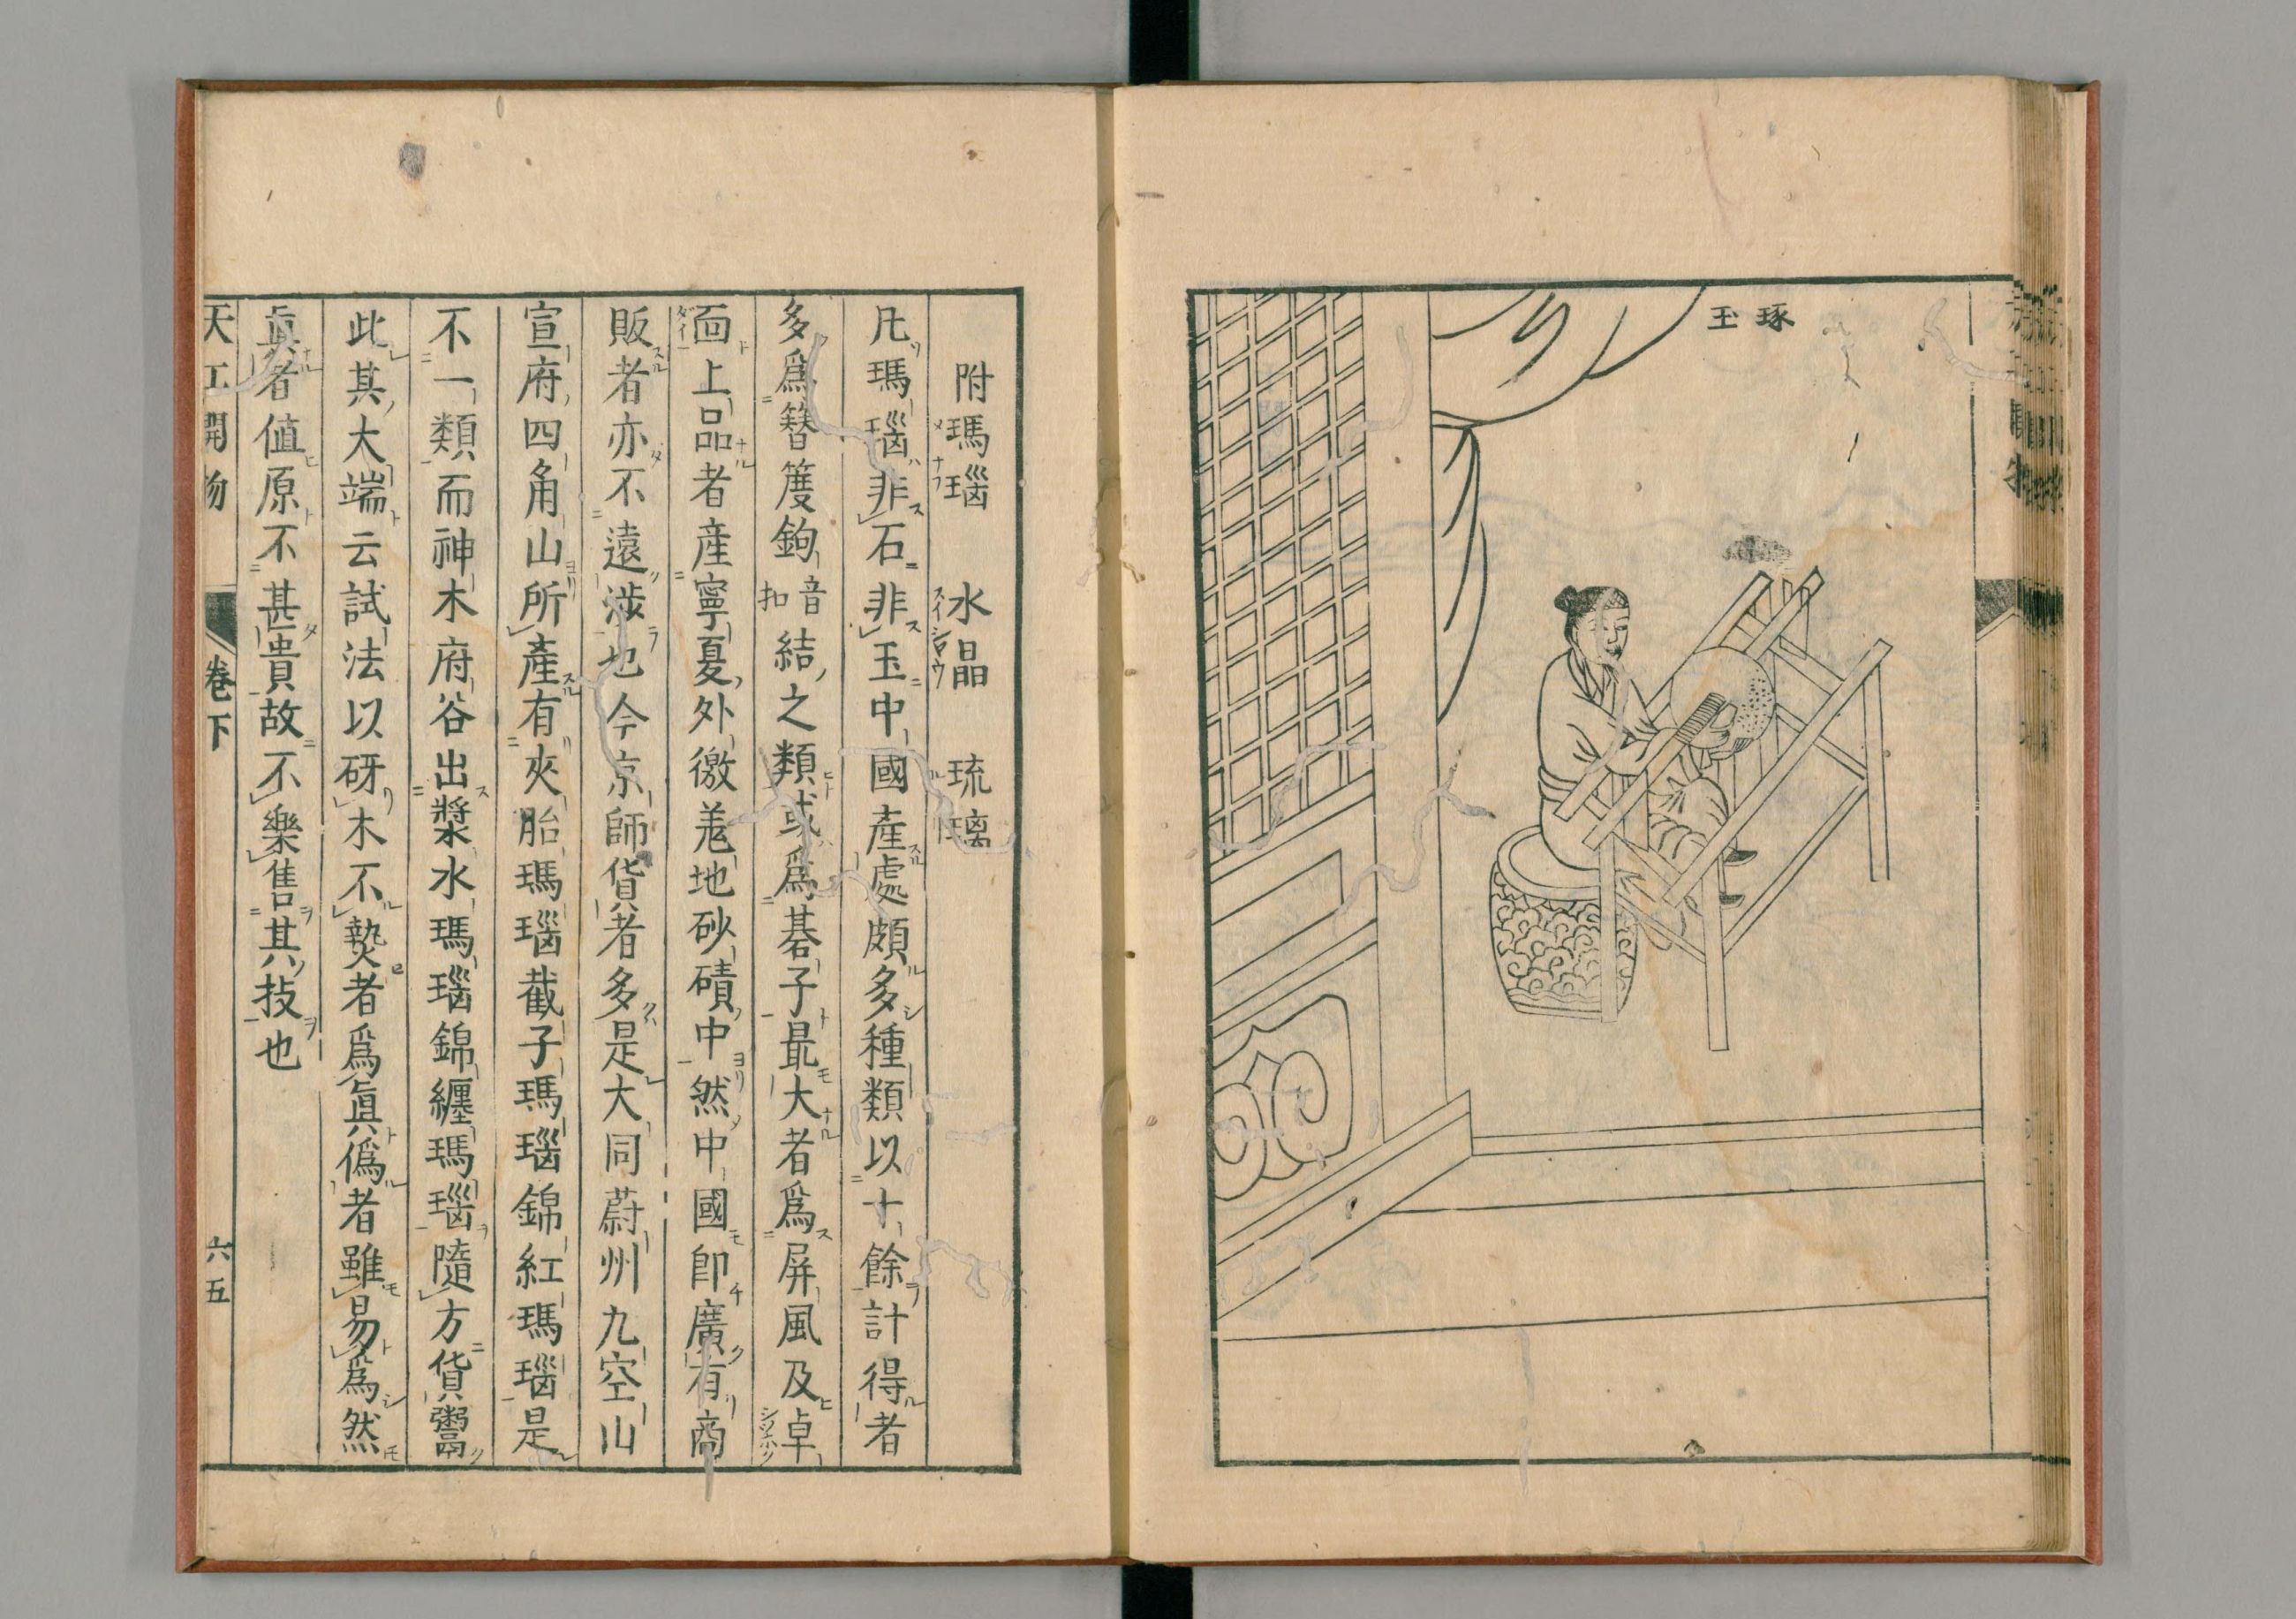 琢玉
附瑪瑙　水晶　琉璃
凡瑪瑙非石非玉中國產處頗多種類以十餘計得者
多爲簪𥴦鉤音扣結之類或爲棊子最大者爲屏風及卓
面上品者産寧夏外徼羗地砂磧中然中國卽廣有商
販者亦不遠涉也今京師貨者多是大同蔚州九空山
宣府四角山所產有夾胎瑪瑙截子瑪瑙錦紅瑪瑙是
不一類而神木府谷出漿水瑪瑙錦纏瑪瑙隨方貨鬻
此其大端云試法以砑木不𤍠者爲眞僞者雖易爲然
眞者値原不甚貴故不樂售其技也
天工開物　卷下　六五